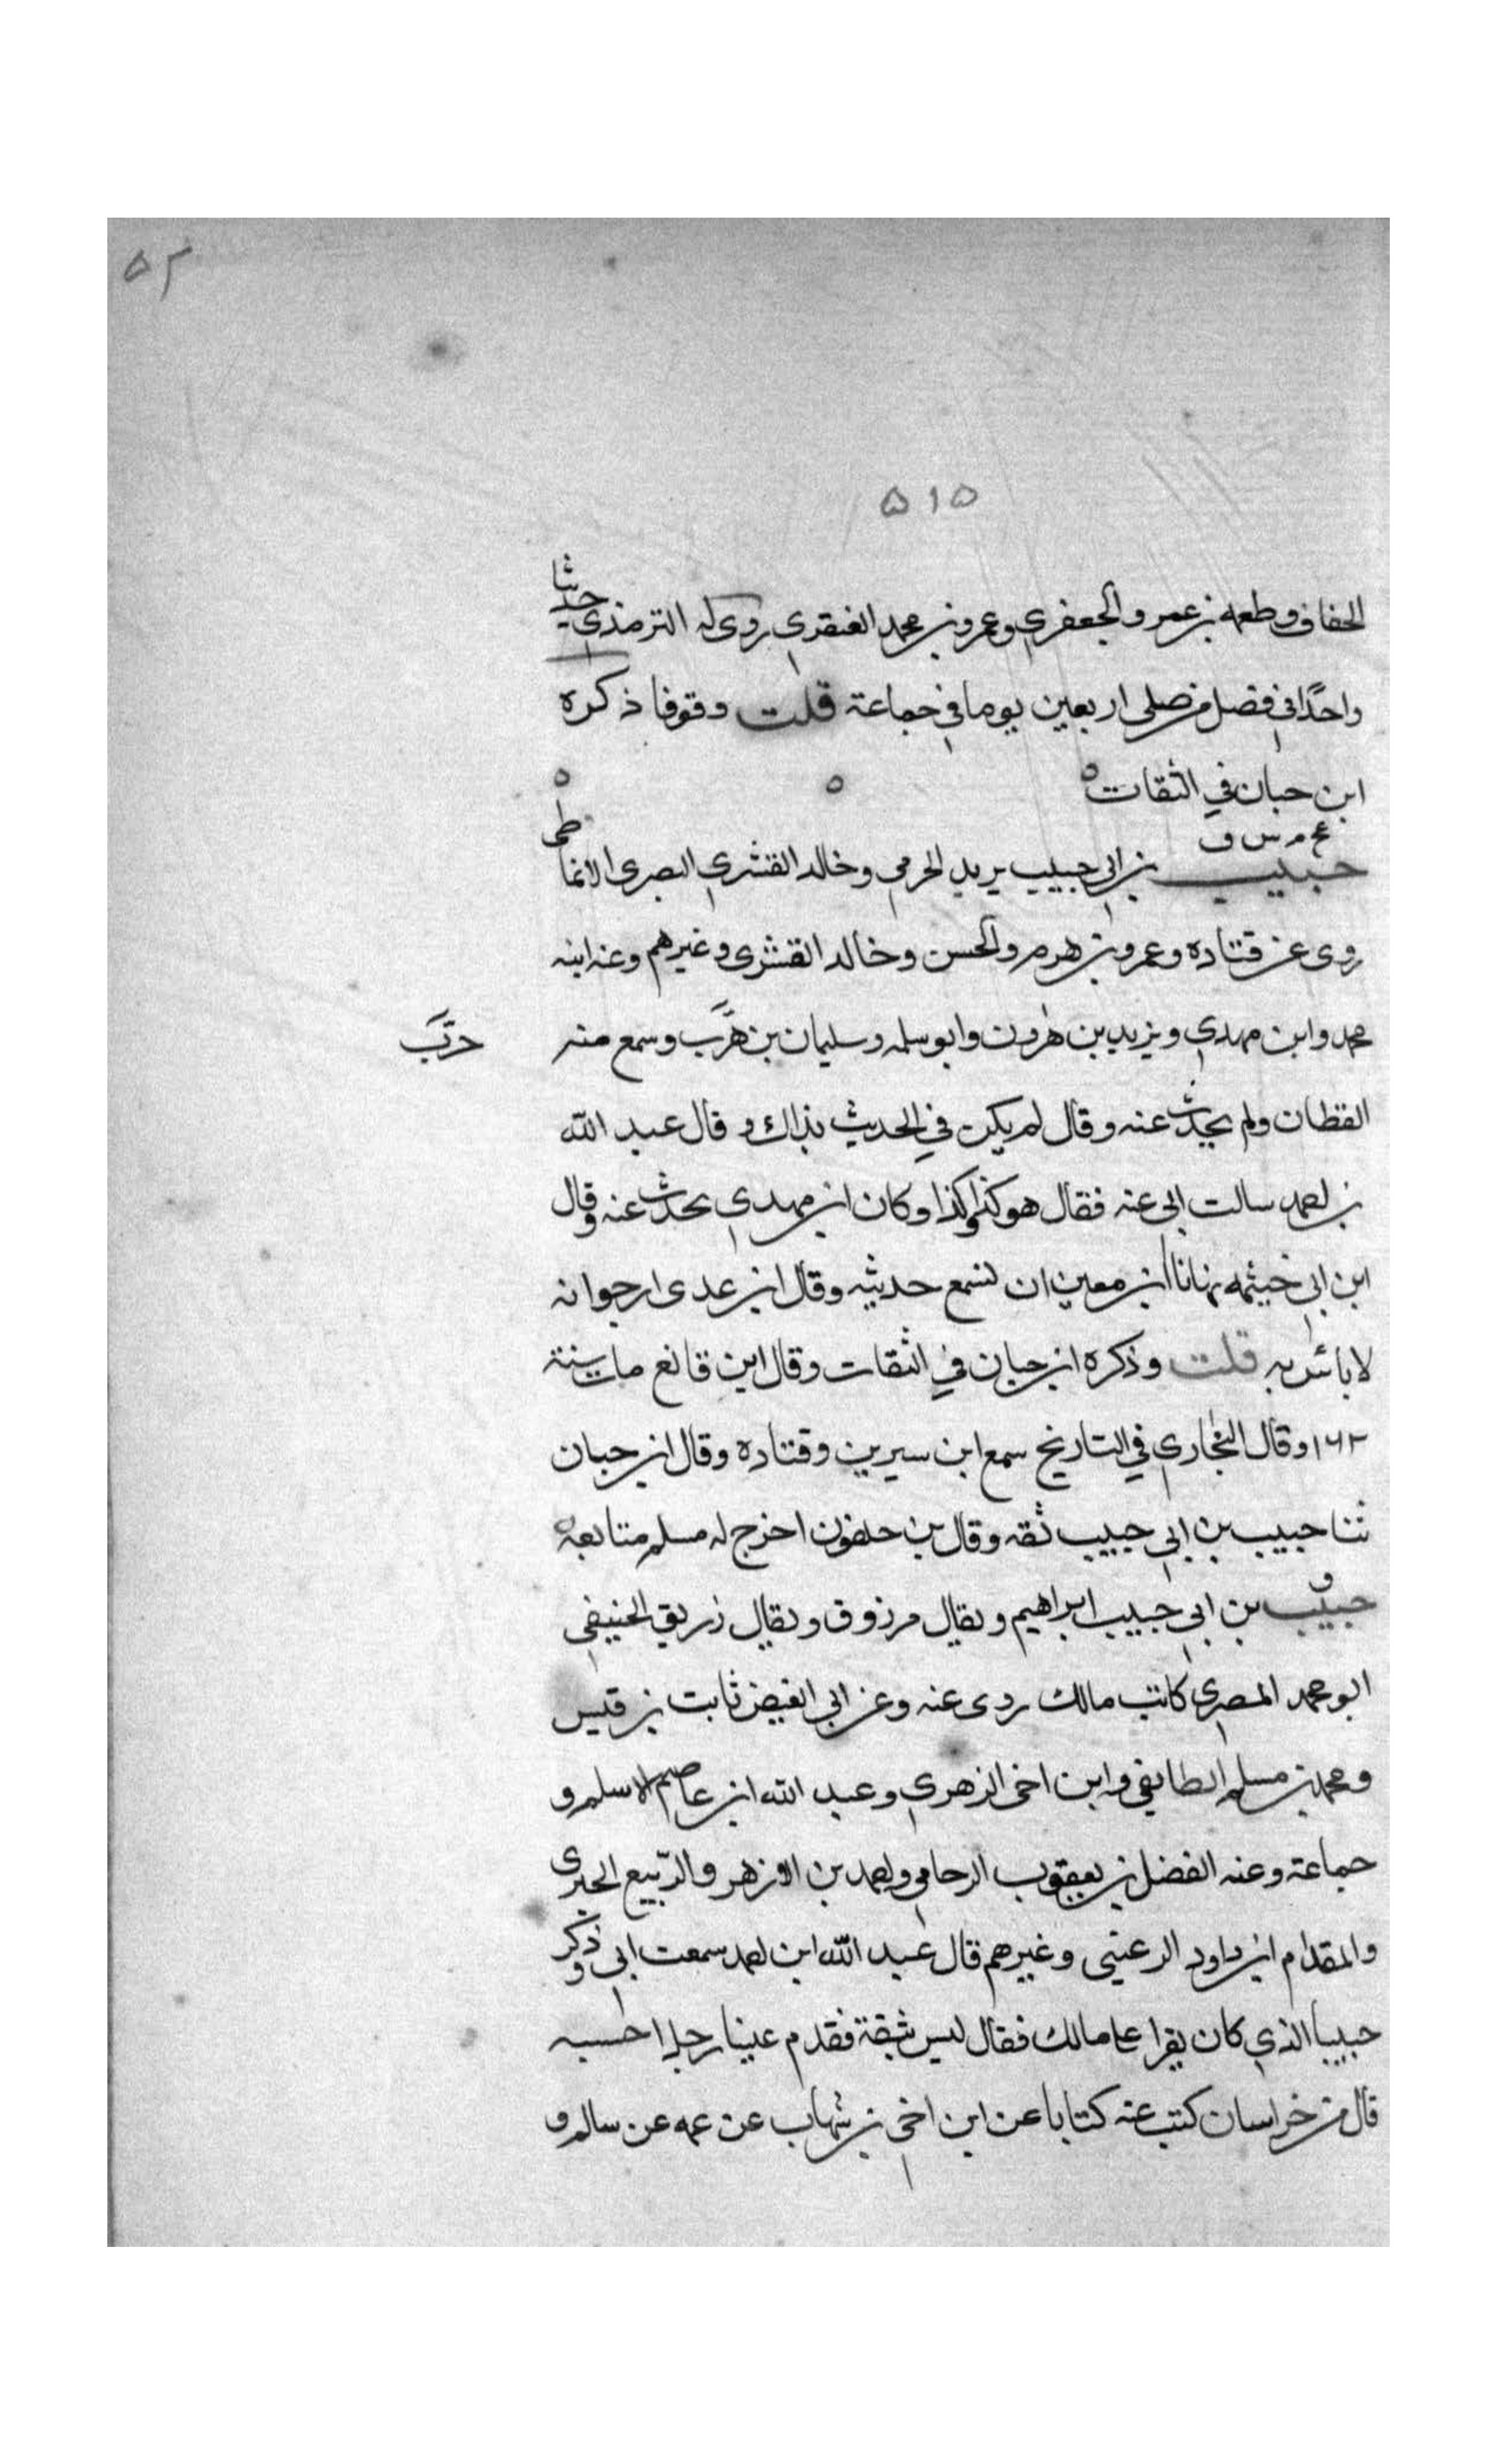 ٥٢
٥١٥
الخفاف وطعمه بن عمرو الجعفري وعمرو بن محمد العنقري روى له الترمذي حديثا
واحدًا في فضل من صلى اربعين يوما في جماعة قلت وقوفا ذكره
ابن حبان في الثقات ٥ ٥ ٥
خ م س ق
حبيب بن ابي حبيب يريد الجرمي وخالد القشري البصري الانماطى
روى عن قتاده وعمرو بن هرم والحسن وخالد القشرى وغيرهم وعنه ابنه
محمد وابن مهدي ويزيد بن هٰرون وابو سلمه وسليمان بن هرَّب وسمع منه
حرَّب
القطان ولم يحدث عنه وقال لم يكن في الحديث بذاك وقال عبد الله
بن احمد سالت ابي عنه فقال هو كذا وكذا وكان ابن مهدي يحدث عنه وقال
ابن ابي خيثمه نهانا ابن معين ان نسمع حديثه وقال ابن عدى ارجوانه
لا بائس به قلت وذكره ابن حبان في الثقات وقال ابن قانع مات سنة
١٦٢ وقال البخاري في التاريخ سمع ابن سيرين وقتاده وقال ابن حبان
ثنا حبيب بن ابي حبيب ثقه وقال بن خلفون اخرج له مسلم متابعه
ق
حبيب بن ابي حبيب ابراهيم ويقال مرزوق ويقال زريق الحنيفي
ابو محمد المصري كاتب مالك روى عنه وعن ابي الغيض ثابت بن قيس
ومحمد بن مسلم الطايفي وابن اخى الزهري وعبد الله ابن عاصم الاسلم و
جماعة وعنه الفضل بن يعقوب الرحامي واحمد بن الازهر والربّيع الجيزى
والمقدام ابن داود الرعيني وغيرهم قال عبد الله ابن احمد سمعت ابي وذكر
حبيبا الذي كان يقرا على مالك فقال ليس بثقة فقدم علينا رجل احسبه
قال من خراسان كتب عنه كتابا عن ابن اخي بن شهاب عن عمه عن سالم و